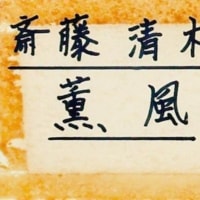 斎藤 清
薫風